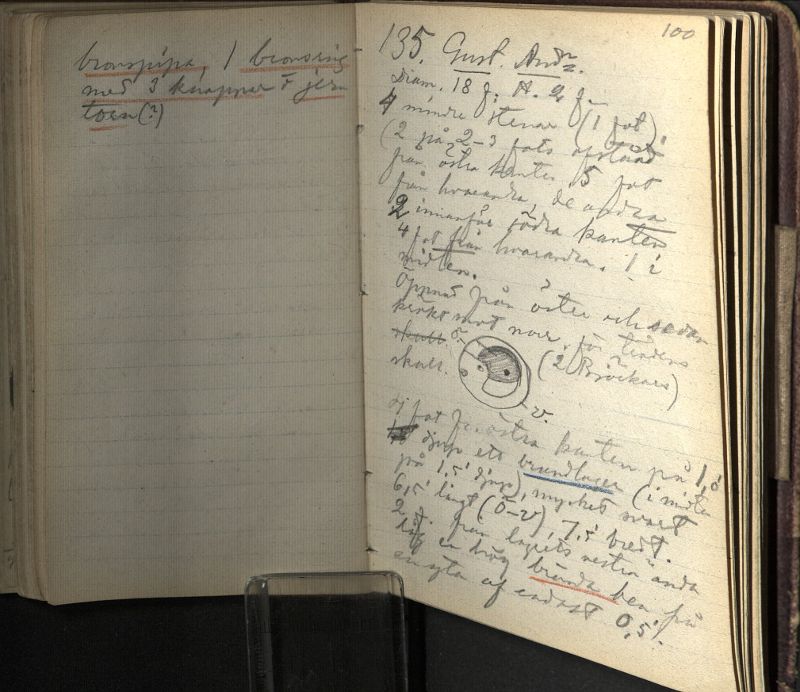 bronspipa, 1 bronsring
med 3 knappar o jern
ten (?)
100
135. Gust. Andr.
Diam. 18 f. H. 2 f.
4 mindre stenar (1 fot),
(2 på 2-3 fots afstånd
från östra kanten 5 fot
från hvarandra, de andra
2 innanför södra kanten
4 fot från hvarandra. 1 i
midten.
Öppnad från öster och sedan
mot norr, för tidens
skull. ö.
skull. (2 Bjöckars)
v.
fot fr. östra kanten på 1,5'
djup ett brandlager (i midten
på 1,5' djup), mycket svart
6,5' långt (Ö-V), 7,5' bredt.
2 f. från lagrets vestra ända
låg en hög brända ben på
en yta af endast 0,5'.